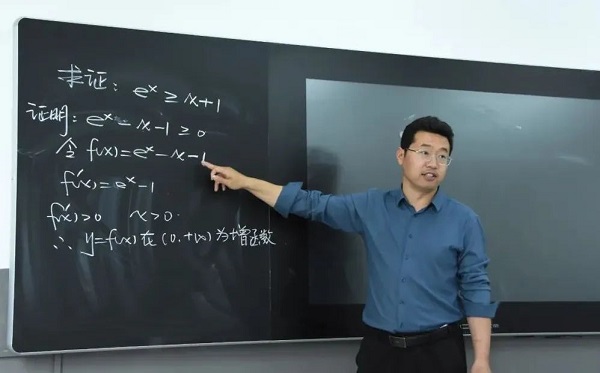 求证: eˣ ≥ x+1
证明: eˣ - x - 1 ≥ 0
令 f(x) = eˣ - x - 1
f'(x) = eˣ - 1
f'(x) > 0 x > 0.
∴ y = f(x) 在 (0, +∞) 为增函数